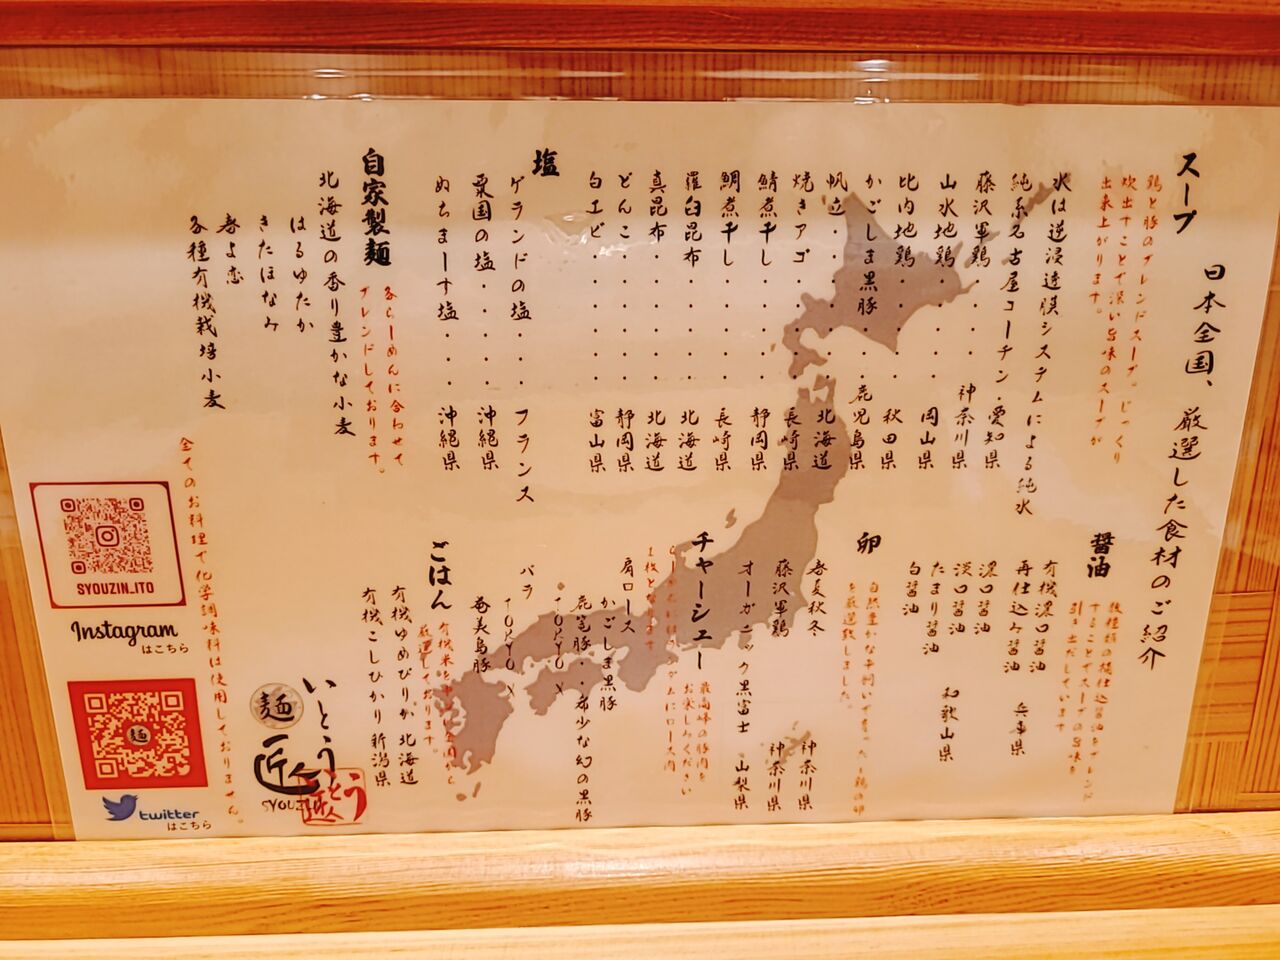 日本全国、厳選した食材のご紹介
スープ
鶏と豚のブレンドスープ。じっくり
炊出すことで深い旨味のスープが
出来上がります。
水は逆浸透膜システムによる純水
純系名古屋コーチン・愛知県
藤沢軍鶏・・・・神奈川県
山水地鶏・・・・・岡山県
比内地鶏・・・・・秋田県
かごしま黒豚・・・鹿児島県
帆立・・・・・・・北海道
焼きアゴ・・・・・長崎県
鯖煮干し・・・・・静岡県
鯛煮干し・・・・・長崎県
羅臼昆布・・・・・北海道
真昆布・・・・・・北海道
どんこ・・・・・・静岡県
白エビ・・・・・・富山県
塩
ゲランドの塩・・・フランス
粟国の塩・・・・・沖縄県
ぬちまーす塩・・・沖縄県
自家製麺
各らーめんに合わせて
ブレンドしております。
北海道の香り豊かな小麦
はるゆたか
きたほなみ
春よ恋
各種有機栽培小麦
醤油
数種類の
醤油をブレンド
することでスープの旨味を
引き出だしています
有機濃口醤油
再仕込み醤油 兵庫県
濃口醤油
淡口醤油
たまり醤油 和歌山県
白醤油
卵
自然豊かな平飼いで育った鶏の卵
を厳選致しました。
春夏秋冬 神奈川県
藤沢軍鶏 神奈川県
オーガニック黒富士 山梨県
チャーシュー
最高峰の豚肉を
お楽しみください
1枚となります
肩ロース
かごしま黒豚
鹿篭豚・・希少な幻の黒豚
TOKYO X
バラ
TOKYO X
奄美島豚
ごはん
有機米を
厳選しております。
有機ゆめぴりか 北海道
有機こしひかり 新潟県
全てのお料理で化学調味料は使用しておりません。
いとう
麺
匠
SYOUZIN
SYOUZIN_ITO
Instagram
はこちら
麺
twitter
はこちら